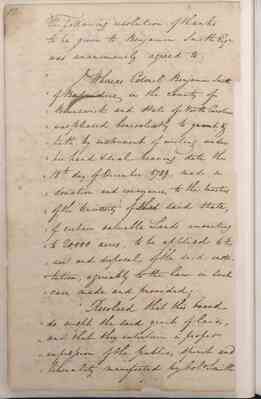 The following resolution of thanks
to be given to Benjamin Smith Esqr
was unanimously agreed to
" Whereas Colonel Benjamin Smith
" of in the County of
" Brunswick and State of North Carolina
" was pleased to
" by instrument of writing under
" his hand & seal bearing date the
" 18th day of December 1789, made a
" donation and conveyance to the trustees
" of the University of the said state,
" of certain valuable Lands amounting
" to 20000 acres, to be applied to the
" use and disposal of the said insti-
" tution, agreeably to the law in such
" case made and provided;
" Resolved that this board
" do accept the said grant of lands,
" and that they entertain a proper
" impression of the public spirit and
" liberality manifested by Colo Smith